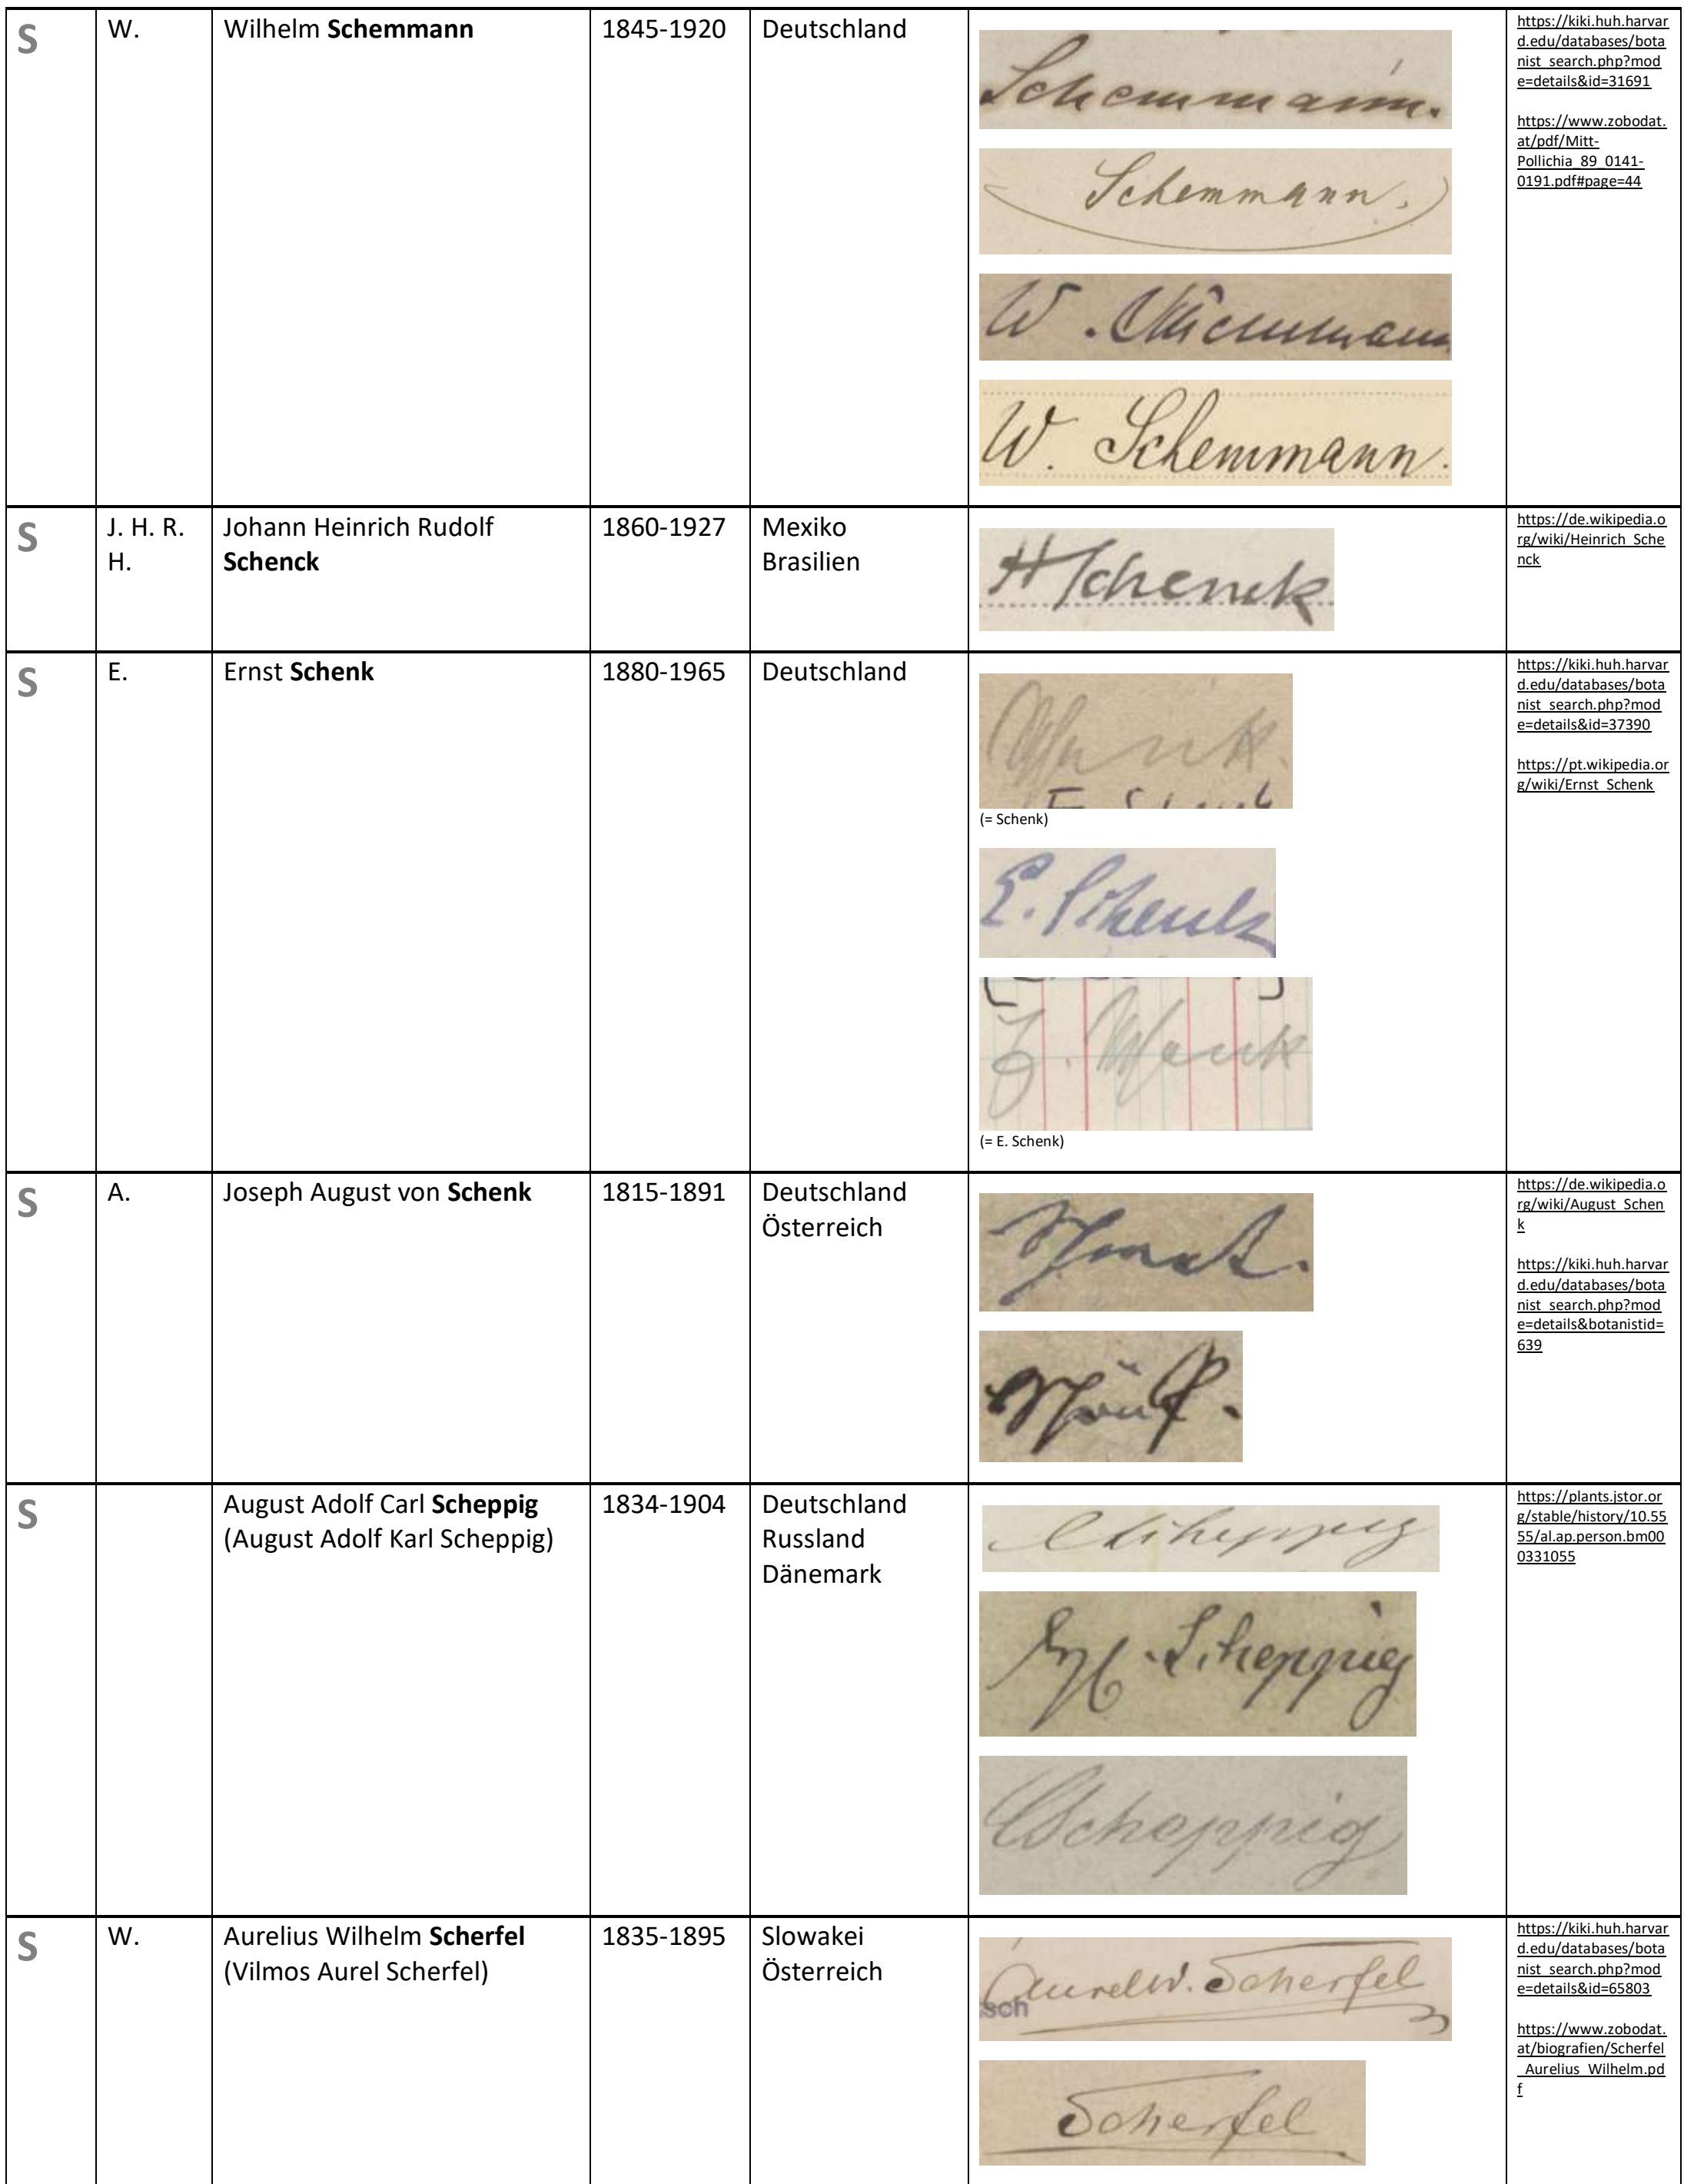 S
W.
Wilhelm Schemmann
1845-1920
Deutschland
Schemmann.
Schemmann.
W. Schemmann
W. Schemmann.
https://kiki.huh.harvar
d.edu/databases/bota
nist_search.php?mod
e=details&id=31691
https://www.zobodat.
at/pdf/Mitt-
Pollichia_89_0141-
0191.pdf#page=44
S
J. H. R.
H.
Johann Heinrich Rudolf
Schenck
1860-1927
Mexiko
Brasilien
H Schenck
https://de.wikipedia.o
rg/wiki/Heinrich_Sche
nck
S
E.
Ernst Schenk
1880-1965
Deutschland
Schenk.
E. Schenk
(= Schenk)
E. Schenk
E. Schenk
(= E. Schenk)
https://kiki.huh.harvar
d.edu/databases/bota
nist_search.php?mod
e=details&id=37390
https://pt.wikipedia.or
g/wiki/Ernst_Schenk
S
A.
Joseph August von Schenk
1815-1891
Deutschland
Österreich
Schenk.
Schenk.
https://de.wikipedia.o
rg/wiki/August_Schen
k
https://kiki.huh.harvar
d.edu/databases/bota
nist_search.php?mod
e=details&botanistid=
639
S
August Adolf Carl Scheppig
(August Adolf Karl Scheppig)
1834-1904
Deutschland
Russland
Dänemark
CScheppig
Scheppig
CScheppig
https://plants.jstor.or
g/stable/history/10.55
55/al.ap.person.bm00
0331055
S
W.
Aurelius Wilhelm Scherfel
(Vilmos Aurel Scherfel)
1835-1895
Slowakei
Österreich
Aurel W. Scherfel
sch
Scherfel
https://kiki.huh.harvar
d.edu/databases/bota
nist_search.php?mod
e=details&id=65803
https://www.zobodat.
at/biografien/Scherfel
_Aurelius_Wilhelm.pd
f